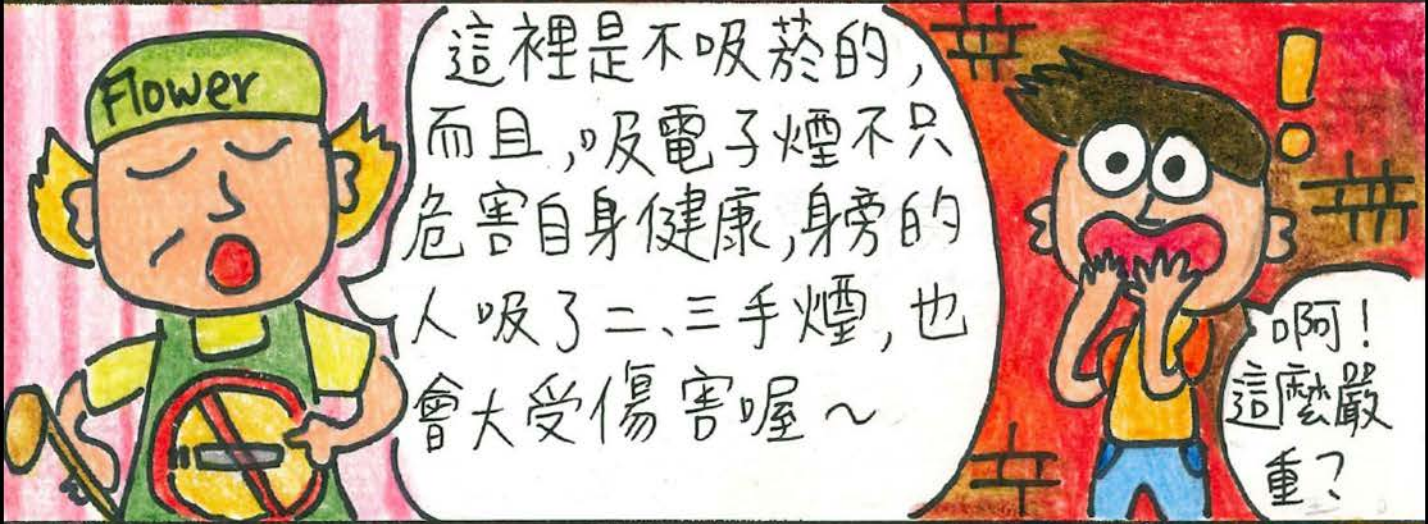 Flower
這裡是不吸菸的,
而且,吸電子煙不只
危害自身健康,身旁的
人吸了二、三手煙,也
會大受傷害喔~
!
啊!
這麼嚴
重?